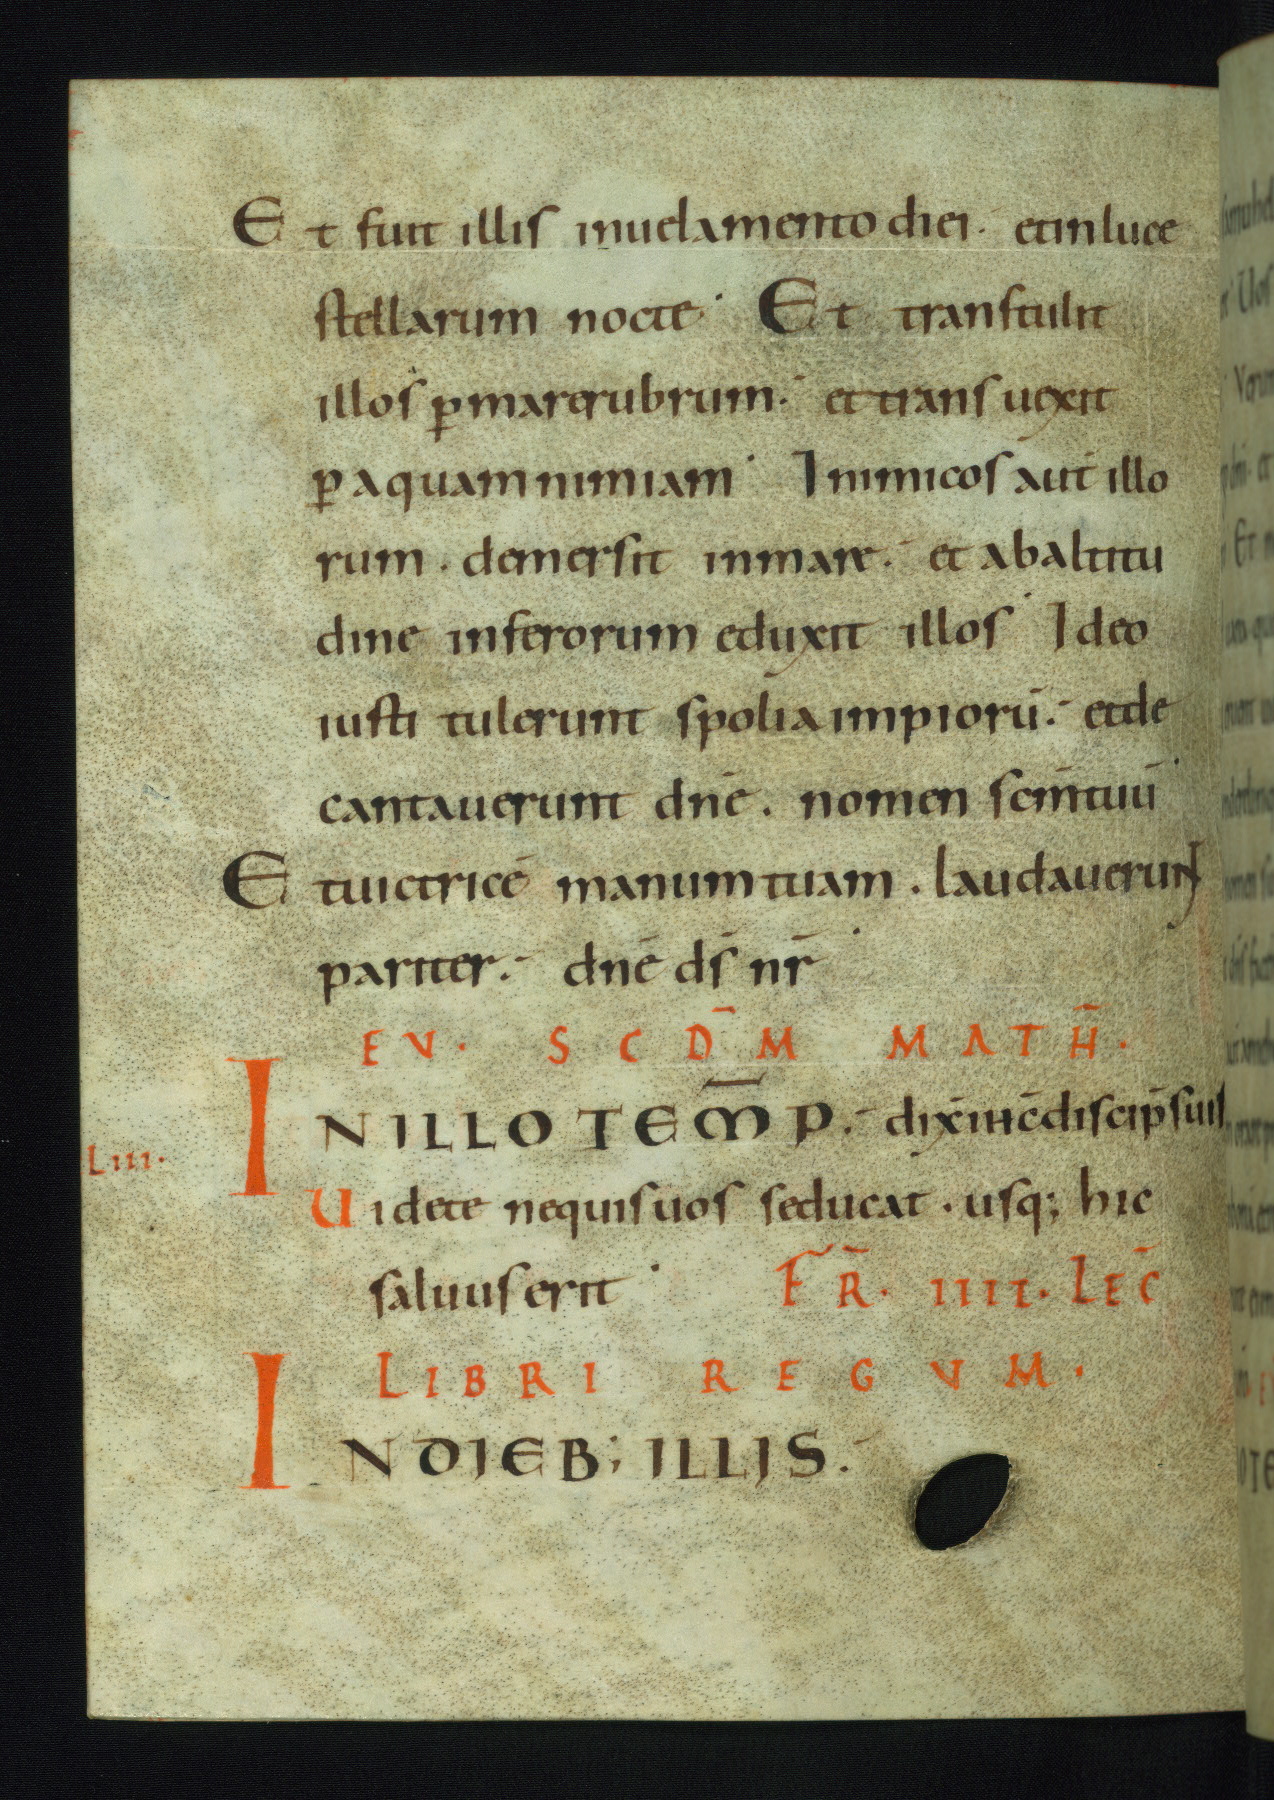 Et fuit illis inuelamento diei. et in luce
stellarum nocte. Et transtulit
illos p̄ mare rubrum. et transuexit
p̄ aquam nimiam. Inimicos aut̄ illo
rum. demersit in mare. et ab altitu
dine inferorum eduxit illos. Ideo
iusti tulerunt spolia impiorū. et de
cantauerunt dn̄e. nomen scm̄ tuū.
Et uictricē manum tuam. laudauerunt
pariter. dn̄e ds̄ nr̄.
EV. SCD̄M MATH̄.
IN ILLO TEM̄P. dix̄ ih̄c discip̄ suis
LIII.
Uidete nequis uos seducat. usq; hic
saluus erit. FR̄. IIII. LEC̄
LIBRI REGVM.
IN DIEB; ILLIS.